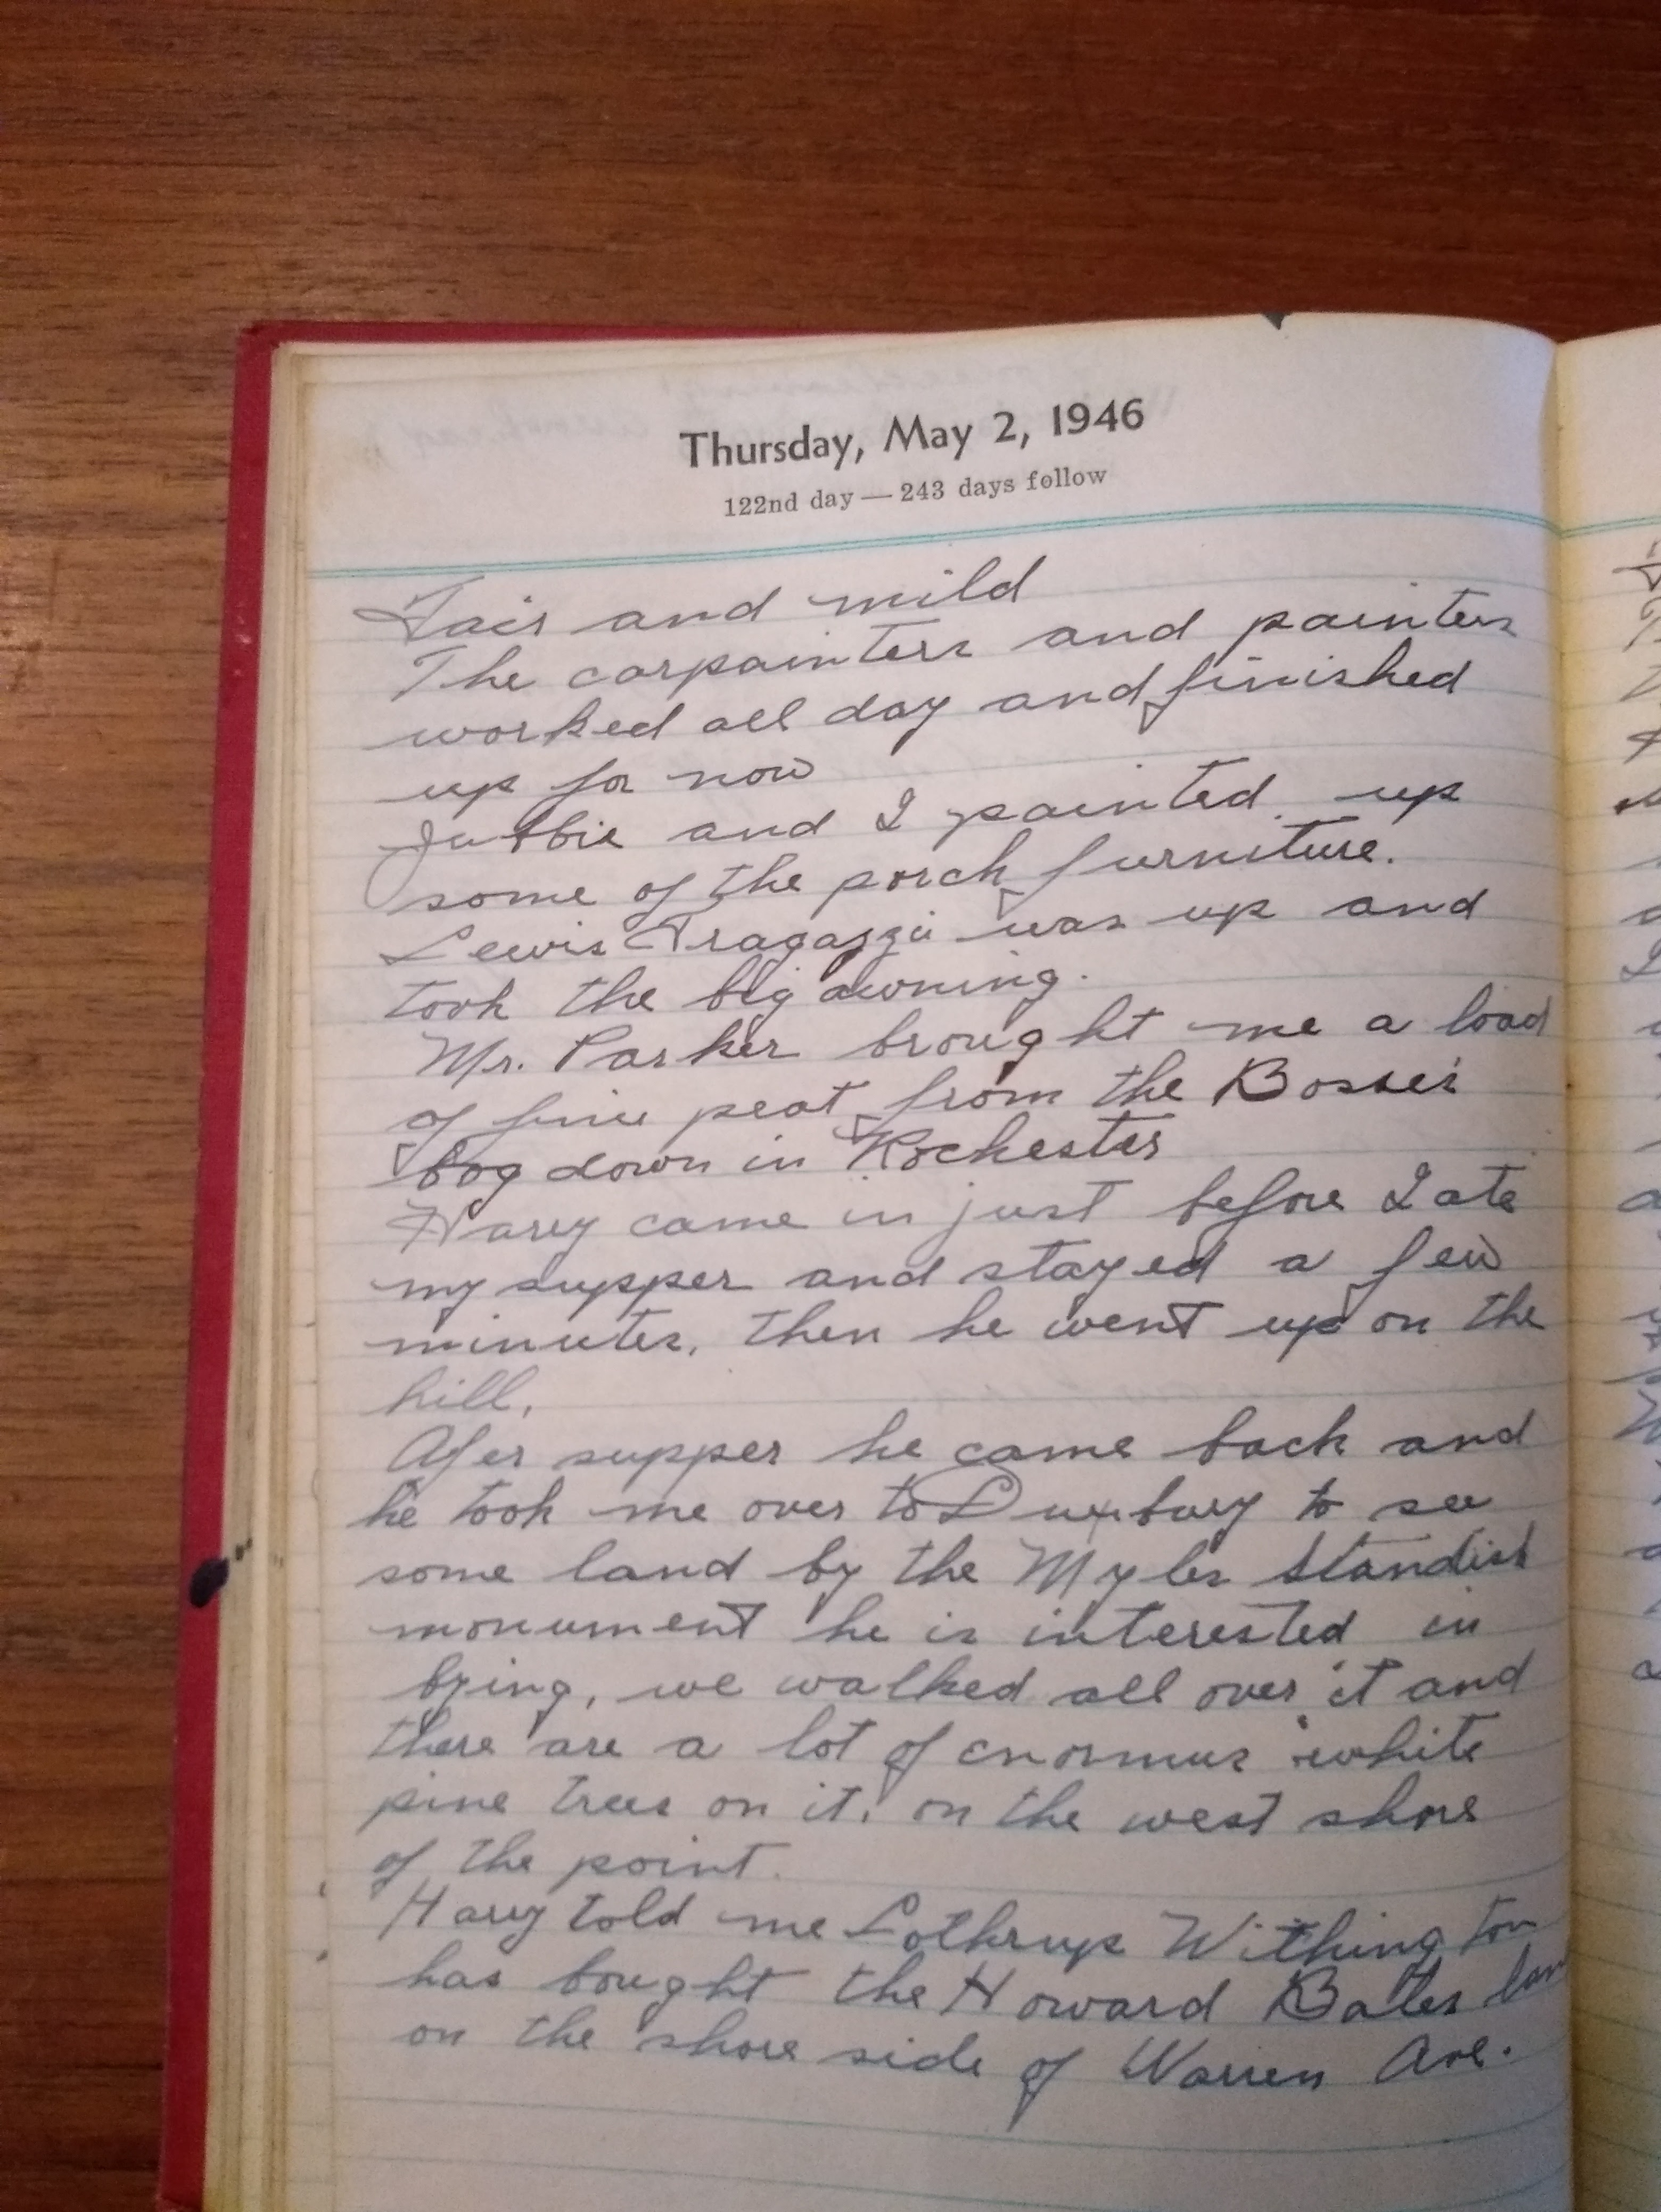 Thursday, May 2, 1946
122nd day — 243 days follow
Fair and mild
The carpainters and painters
worked all day and finished
up for now
and I painted up
some of the porch furniture.
Lewis was up and
took the big awning.
Mr. Parker brought me a load
of fine peat from the
bog down in Rochester
Harry came in just before I ate
my supper and stayed a few
minutes, then he went up on the
hill,
Afer supper he came back and
he took me over to Duxbury to see
some land by the Myles Standish
monument he is interested in
bying, we walked all over it and
there are a lot of enormus white
pine trees on it, on the west shore
of the point.
Harry told me Lothrup Withington
has bought the Howard Bates
on the shore side of Warren Ave.